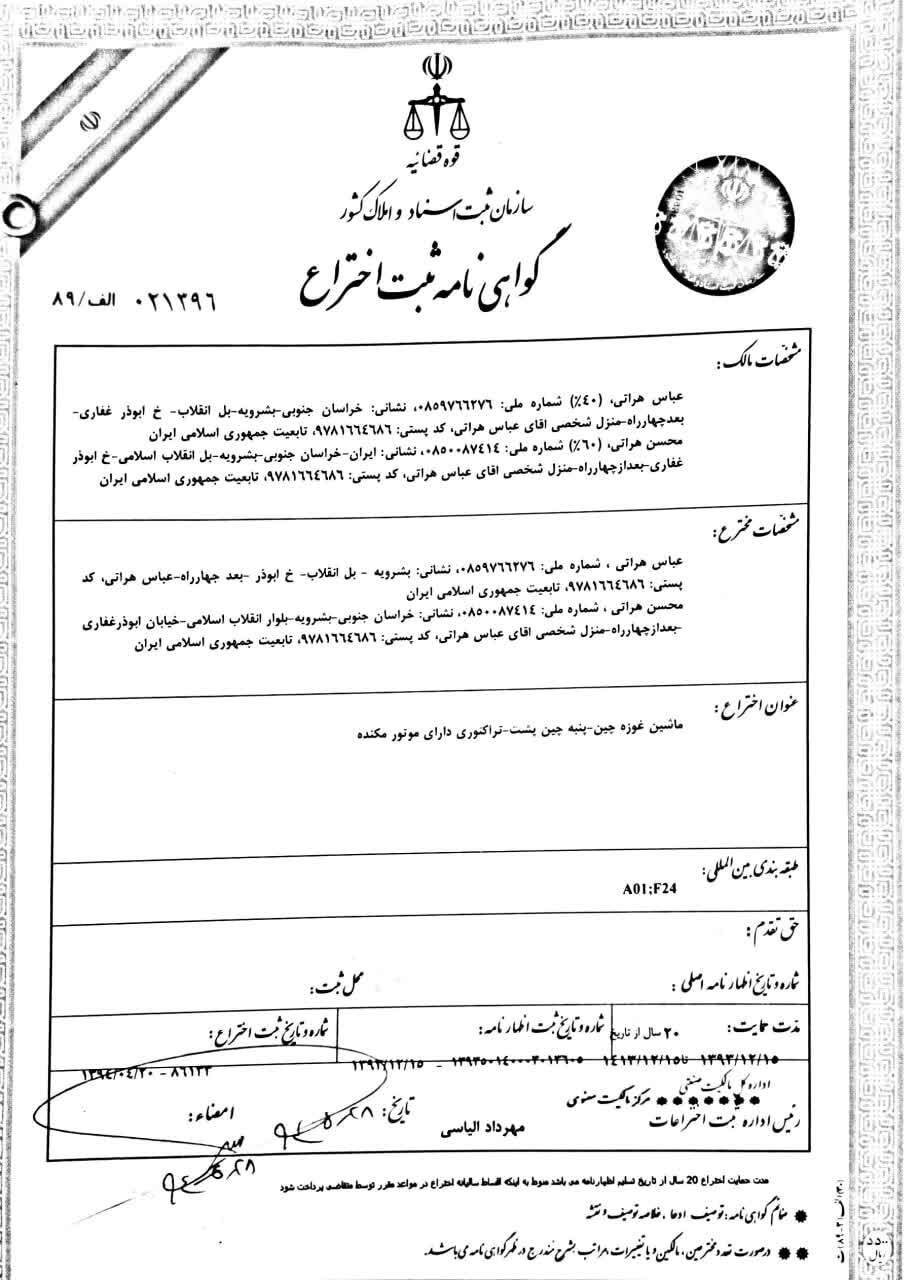 قوه قضائیه
سازمان ثبت اسناد و املاک کشور
گواهی نامه ثبت اختراع
۰۲۱۳۹۶ الف/۸۹
مشخصات مالک:
عباس هراتی، (۴۰٪) شماره ملی: ۰۸۵۹۷۶۶۲۷۶، نشانی: خراسان جنوبی-بشرویه-بل انقلاب- خ ابوذر غفاری-
بعدچهارراه-منزل شخصی اقای عباس هراتی، کد پستی: ۹۷۸۱۶۶۴۶۸۶، تابعیت جمهوری اسلامی ایران
محسن هراتی، (۶۰٪) شماره ملی: ۰۸۵۰۰۸۷۴۱۴، نشانی: ایران-خراسان جنوبی-بشرویه-بل انقلاب اسلامی-خ ابوذر
غفاری-بعدازچهارراه-منزل شخصی اقای عباس هراتی، کد پستی: ۹۷۸۱۶۶۴۶۸۶، تابعیت جمهوری اسلامی ایران
مشخصات مخترع:
عباس هراتی ، شماره ملی: ۰۸۵۹۷۶۶۲۷۶، نشانی: بشرویه - بل انقلاب- خ ابوذر -بعد چهارراه-عباس هراتی، کد
پستی: ۹۷۸۱۶۶۴۶۸۶، تابعیت جمهوری اسلامی ایران
محسن هراتی ، شماره ملی: ۰۸۵۰۰۸۷۴۱۴، نشانی: خراسان جنوبی-بشرویه-بلوار انقلاب اسلامی-خیابان ابوذرغفاری
-بعدازچهارراه-منزل شخصی اقای عباس هراتی، کد پستی: ۹۷۸۱۶۶۴۶۸۶، تابعیت جمهوری اسلامی ایران
عنوان اختراع:
ماشین غوزه چین-پنبه چین پشت-تراکتوری دارای موتور مکنده
طبقه بندی بین المللی:
A01;F24
حق تقدم:
شماره و تاریخ اظهارنامه اصلی: محل ثبت:
مدت حمایت: ۲۰ سال از تاریخ شماره و تاریخ ثبت اظهارنامه: شماره و تاریخ ثبت اختراع:
۱۳۹۳/۱۲/۱۵ تا ۱۴۱۳/۱۲/۱۵ ۱۳۹۳۵۰۱۴۰۰۰۳۰۱۳۶۰۵ - ۱۳۹۳/۱۲/۱۵ ۸۶۱۲۲ - ۱۳۹۴/۰۴/۲۰
اداره کل مالکیت صنعتی
مرکز مالکیت معنوی
رئیس اداره ثبت اختراعات مهرداد الیاسی تاریخ: امضاء:
مدت حمایت اختراع 20 سال از تاریخ تسلیم اظهارنامه می باشد منوط به اینکه اقساط سالیانه اختراع در مواعد مقرر توسط متقاضی پرداخت شود
ضمائم گواهی نامه: توصیف، ادعا، خلاصه توصیف و نقشه
درصورت تعدد مخترعین، مالکین و یا تغییرات، مراتب بشرح مندرج در ظهر گواهی نامه می باشد.
۵۵۰۰ ریال